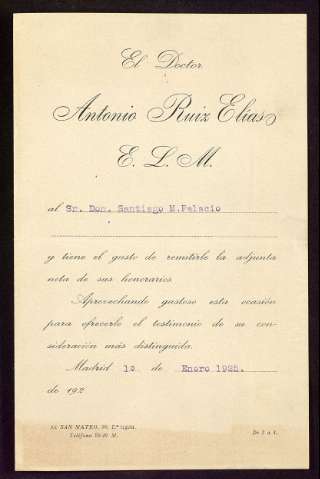 El Doctor
Antonio Ruiz Elías
E. L. M.
al Sr. Don. Santiago M. Palacio
y tiene el gusto de remitirle la adjunta
nota de sus honorarios
Aprovechando gustoso esta ocasión
para ofrecerle el testimonio de su con-
sideración más distinguida.
Madrid 1o de Enero 1925.
de 192
SAN MATEO, 30, 1.º
Teléfono M.
De 3 a 5.